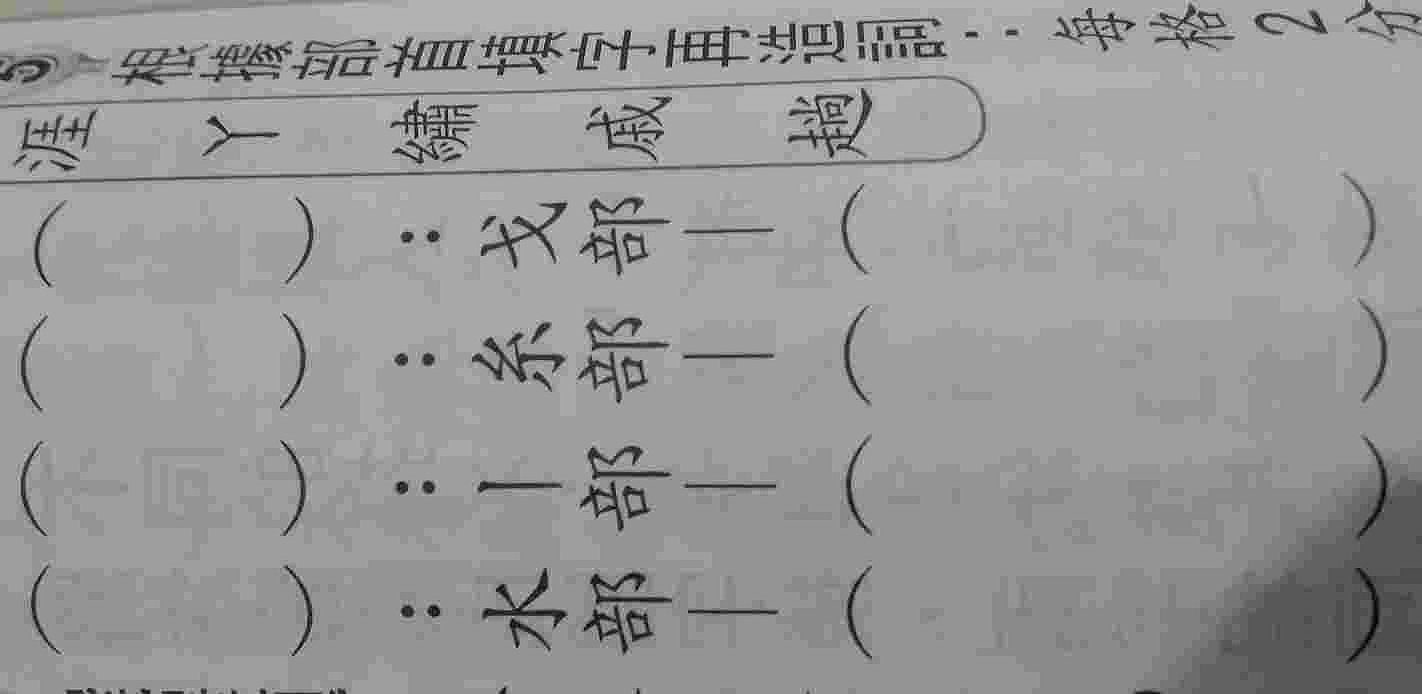 5 根據部首填字再造詞：每格2分
涯 丫 繡 戚 趟
（ ）：戈部—（ ）
（ ）：糸部—（ ）
（ ）：丨部—（ ）
（ ）：水部—（ ）